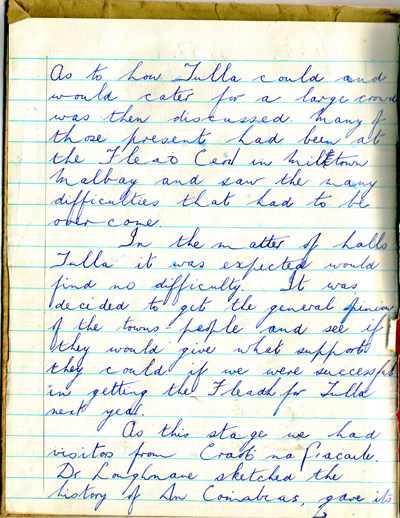 As to how Tulla could and
would cater for a large crowd
was then discussed. Many of
those present had been at
the Flead Ceol in Milltown
Malbay and saw the many
difficulties that had to be
over come.
In the matter of halls
Tulla it was expected would
find no difficulty. It was
decided to get the general opinion
of the towns people and see if
they would give what support
they could if we were successful
in getting the Fleadh for Tulla
next year.
As this stage we had
visitos from Craob na
Dr Loughnane sketched the
history of An Comalcas, gave its